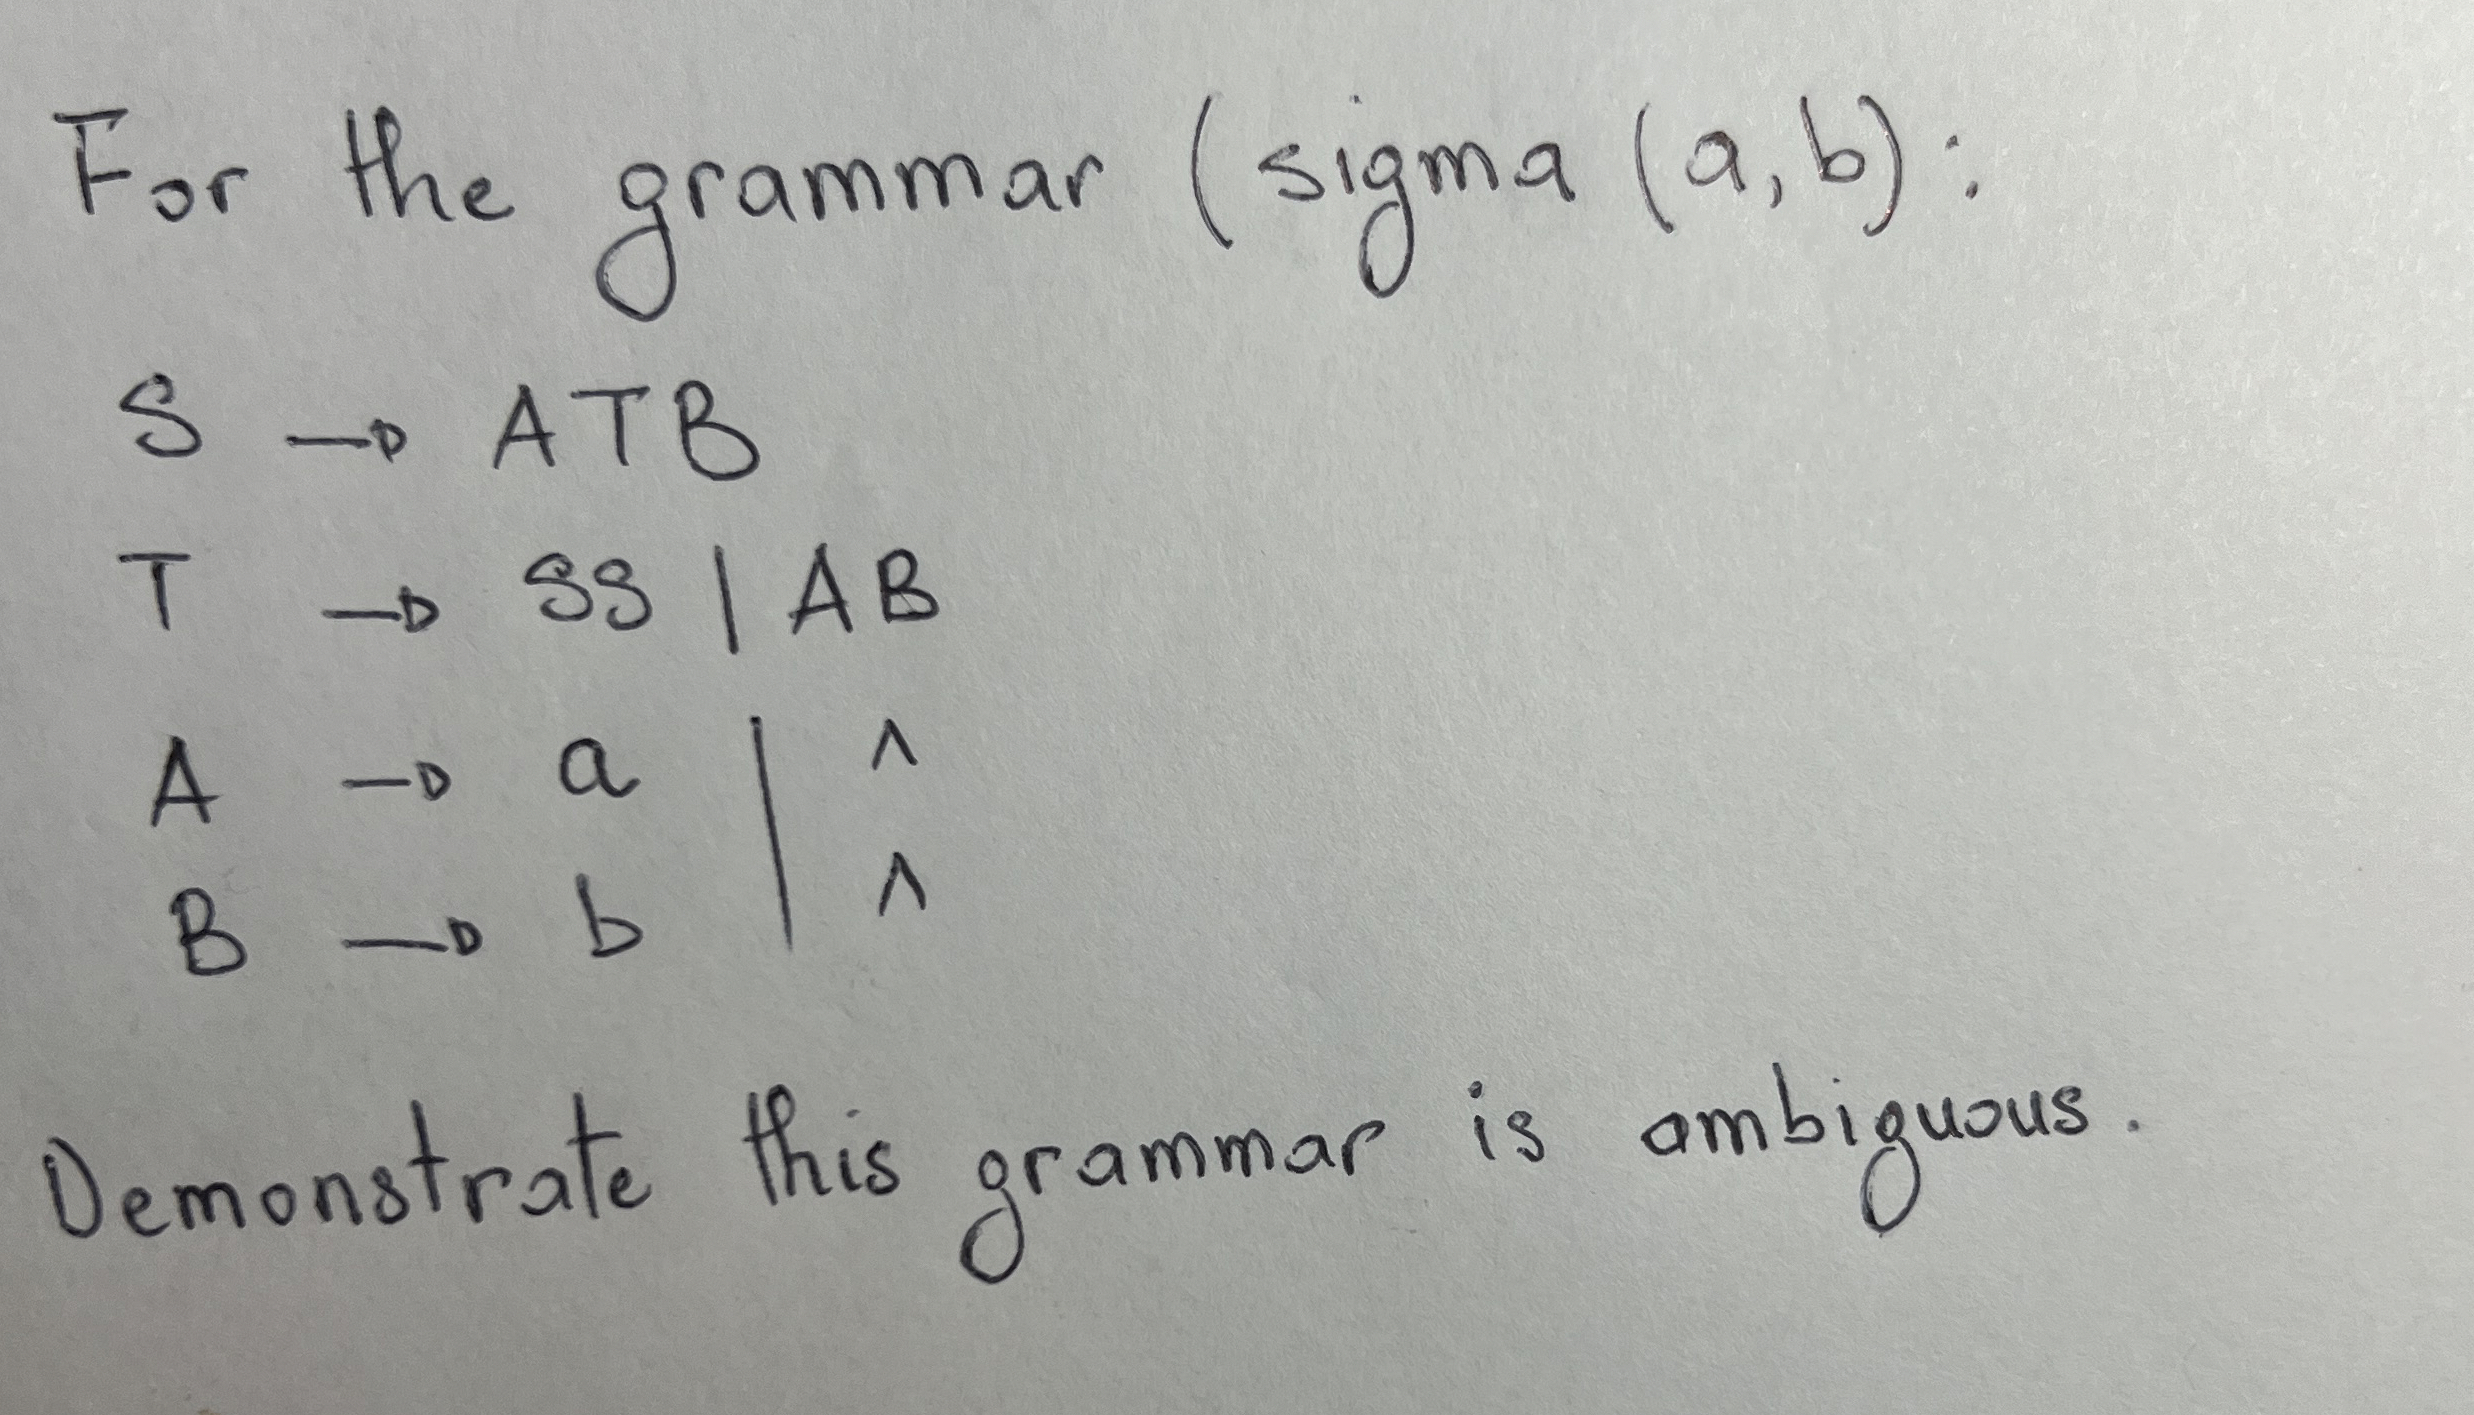 For the grammar (sigma (a,b):
S → ATB
T → SS | AB
A → a | ^
B → b | ^
Demonstrate this grammar is ambiguous.